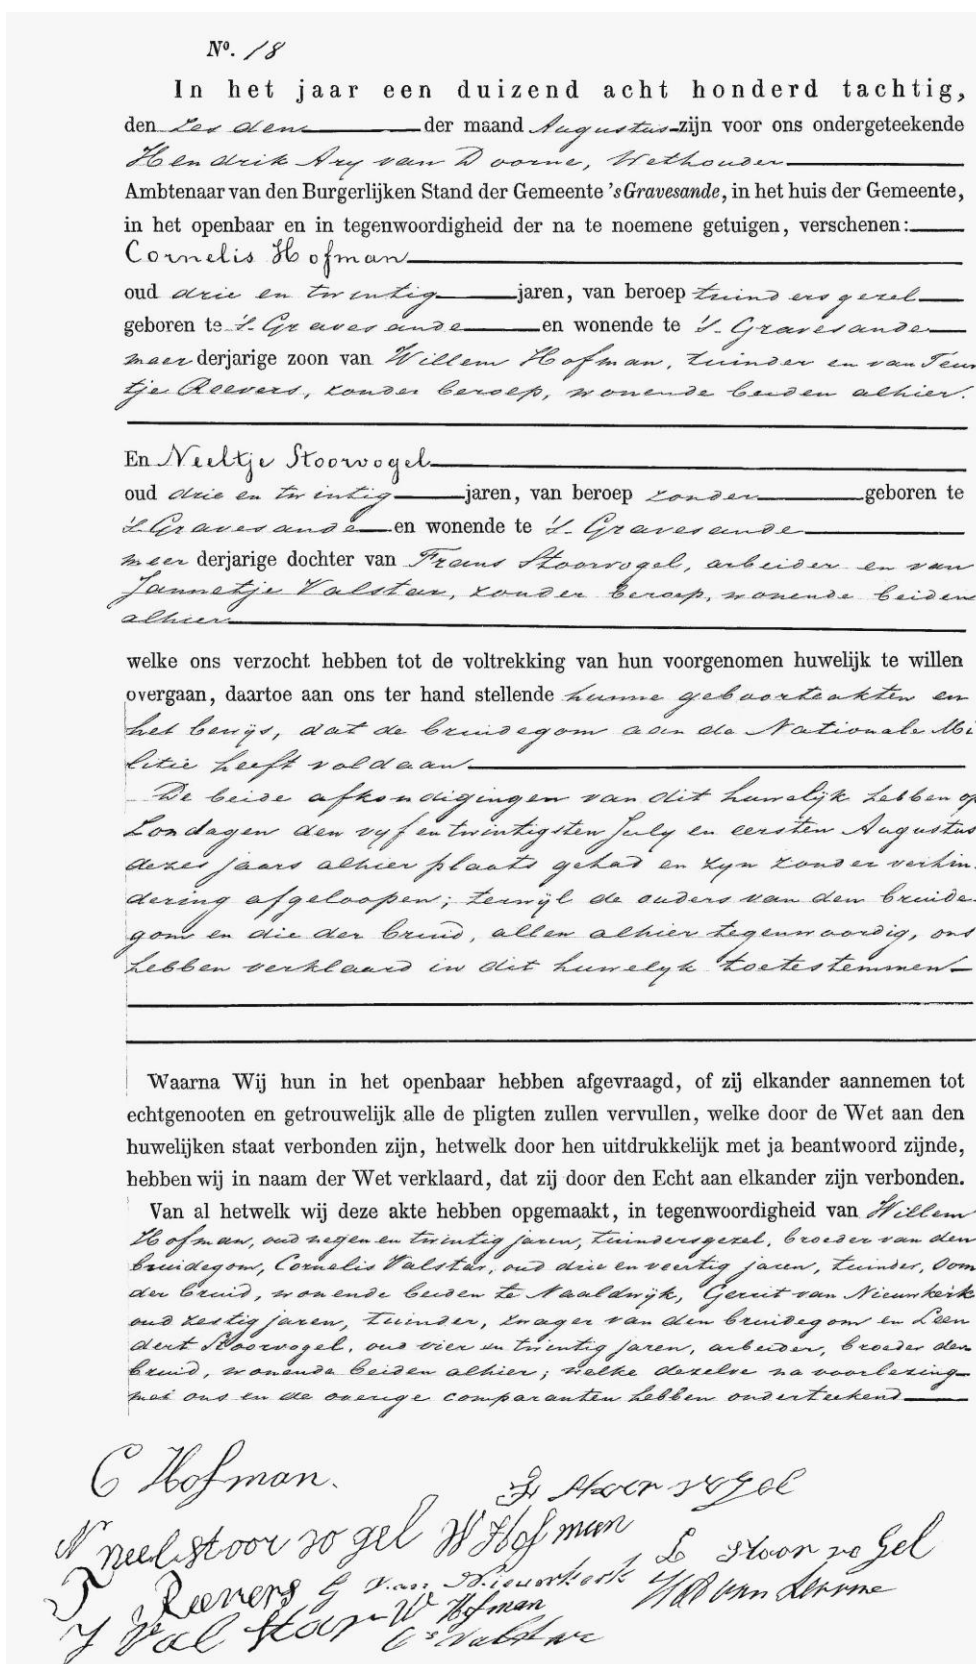 Nº. 18
In het jaar een duizend acht honderd tachtig,
den zesden der maand Augustus zijn voor ons ondergeteekende
Hendrik Ary van Doorne, Wethouder
Ambtenaar van den Burgerlijken Stand der Gemeente 's Gravesande, in het huis der Gemeente,
in het openbaar en in tegenwoordigheid der na te noemene getuigen, verschenen:
Cornelis Hofman
oud drie en twintig jaren, van beroep tuindersgezel
geboren te 's-Gravesande en wonende te 's-Gravesande
meer derjarige zoon van Willem Hofman, tuinder en van Teun
tje Reevers, zonder beroep, wonende beiden alhier.
En Neeltje Stoorvogel
oud drie en twintig jaren, van beroep zonder geboren te
's Gravesande en wonende te 's-Gravesande
meer derjarige dochter van Frans Stoorvogel, arbeider en van
Jannetje Valstar, zonder beroep, wonende beiden
alhier
welke ons verzocht hebben tot de voltrekking van hun voorgenomen huwelijk te willen
overgaan, daartoe aan ons ter hand stellende hunne geboorteakten en
het bewijs, dat de bruidegom aan de Nationale Mi
litie heeft voldaan
De beide afkondigingen van dit huwelijk hebben op
Zondagen den vyf en twintigsten July en eersten Augustus
dezes jaars alhier plaats gehad en zyn zonder verhin
dering afgeloopen; terwijl de ouders van den bruide
gom en die der bruid, allen alhier tegenwoordig, ons
hebben verklaard in dit huwelyk toetestemmen
Waarna Wij hun in het openbaar hebben afgevraagd, of zij elkander aannemen tot
echtgenooten en getrouwelijk alle de pligten zullen vervullen, welke door de Wet aan den
huwelijken staat verbonden zijn, hetwelk door hen uitdrukkelijk met ja beantwoord zijnde,
hebben wij in naam der Wet verklaard, dat zij door den Echt aan elkander zijn verbonden.
Van al hetwelk wij deze akte hebben opgemaakt, in tegenwoordigheid van Willem
Hofman, oud negen en twintig jaren, tuindersgezel, broeder van den
bruidegom, Cornelis Valstar, oud drie en veertig jaren, tuinder, oom
der bruid, wonende beiden te Naaldwijk, Gerrit van Nieuwkerk
oud zestig jaren, tuinder, zwager van den bruidegom en Leen
dert Stoorvogel, oud vier en twintig jaren, arbeider, broeder der
bruid, wonende beiden alhier; welke dezelve na voorlezing
met ons en de overige comparanten hebben onderteekend
C Hofman. Fr Stoorvogel
N neel stoorvogel W Hofman L Stoorvogel
T Reevers G van Nieuwkerk HA van Doorne
J Valstar W Hofman
Cs Valstar